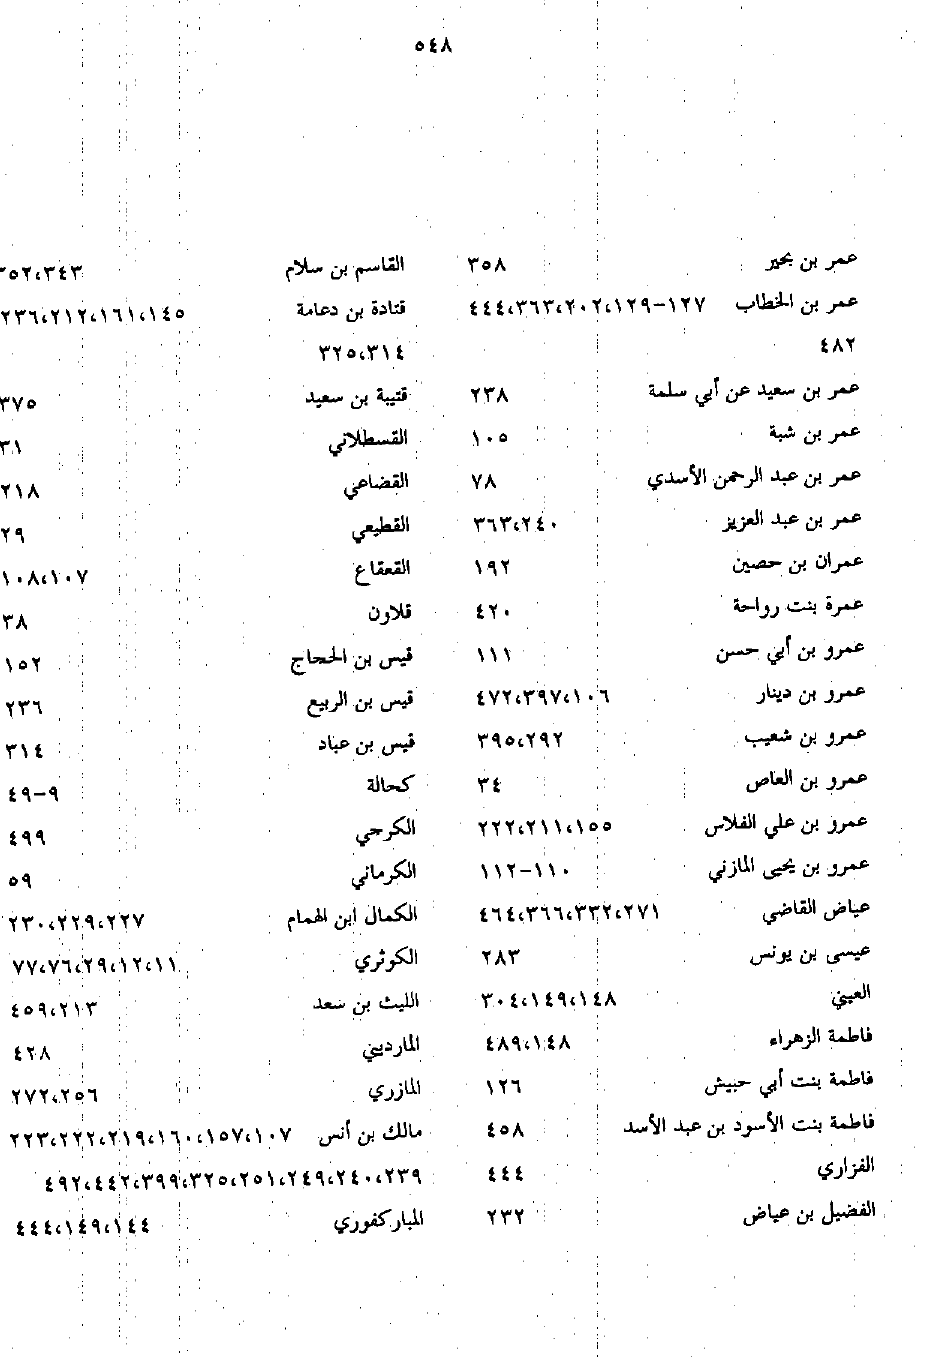 ٥٤٨
عمر بن بحير ٣٥٨
عمر بن الخطاب ١٢٧-١٢٩،٢٠٢،٣٦٣،٤٤٤،
٤٨٢
عمر بن سعيد عن أبي سلمة ٢٣٨
عمر بن شبة ١٠٥
عمر بن عبد الرحمن الأسدي ٧٨
عمر بن عبد العزيز ٢٤٠،٣٦٣
عمران بن حصين ١٩٢
عمرة بنت رواحة ٤٢٠
عمرو بن أبي حسن ١١١
عمرو بن دينار ١٠٦،٣٩٧،٤٧٢
عمرو بن شعيب ٢٩٢،٣٩٥
عمرو بن العاص ٣٤
عمرو بن علي الفلاس ١٥٥،٢١١،٢٢٢
عمرو بن يحيى المازني ١١٠-١١٢
عياض القاضي ٢٧١،٣٣٢،٣٦٦،٤٦٤
عيسى بن يونس ٢٨٣
العيني ١٤٨،١٤٩،٣٠٤
فاطمة الزهراء ١٤٨،٤٨٩
فاطمة بنت أبي حبيش ١٢٦
فاطمة بنت الأسود بن عبد الأسد ٤٥٨
الفزاري ٤٤٤
الفضيل بن عياض ٢٣٢
القاسم بن سلام ٣٤٣،٣٥٢
قتادة بن دعامة ١٤٥،١٦١،٢١٢،٢٣٦
٣١٤،٣٢٥
قتيبة بن سعيد ٣٧٥
القسطلاني ٣١
القضاعي ٢١٨
القطيعي ٢٩
القعقاع ١٠٧،١٠٨
قلاون ٣٨
قيس بن الحجاج ١٥٢
قيس بن الربيع ٢٣٦
قيس بن عباد ٣١٤
كحالة ٩-٤٩
الكرجي ٤٩٩
الكرماني ٥٩
الكمال ابن الهمام ٢٢٧،٢٢٩،٢٣٠
الكوثري ١١،١٢،٢٩،٧٦،٧٧
الليث بن سعد ٢١٣،٤٥٩
المارديني ٤٢٨
المازري ٢٥٦،٢٧٢
مالك بن أنس ١٠٧،١٥٧،١٦٠،٢١٩،٢٢٢،٢٢٣
٢٣٩،٢٤٠،٢٤٩،٢٥١،٣٢٥،٣٩٩،٤٤٢،٤٩٢
المباركفوري ١٤٤،١٤٩،٤٤٤